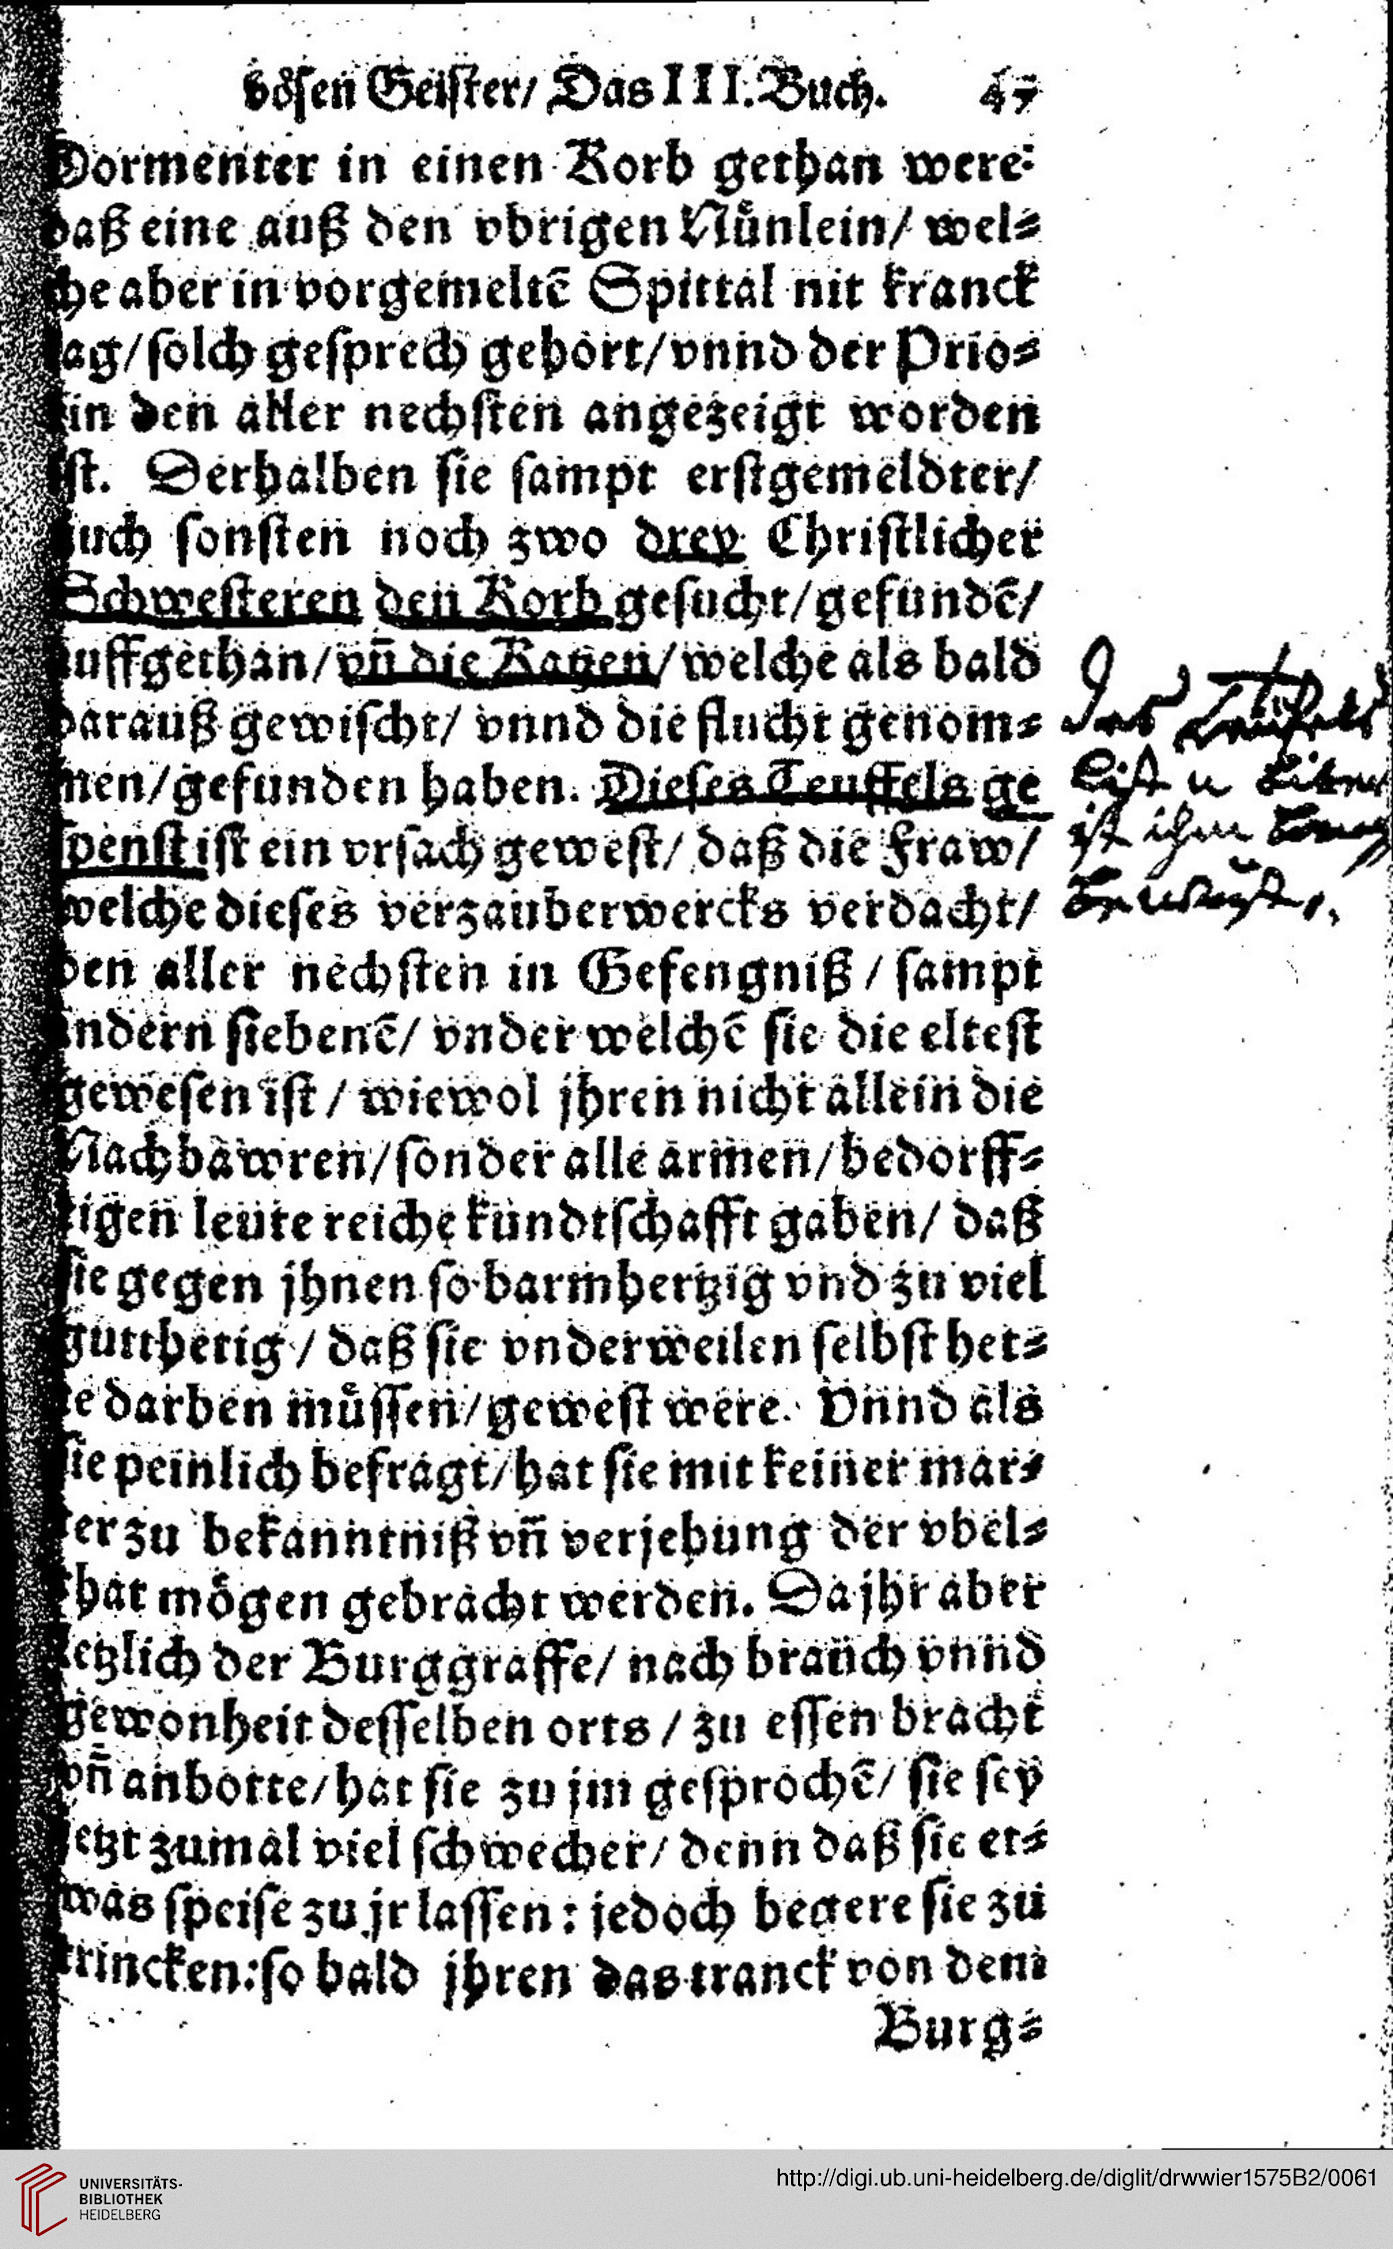 boͤsen Geister/ Das III. Buch. 47
Dormenter in einen Korb gethan were:
daß eine auß den vbrigen Nuͤnlein/ wel⸗
che aber in vorgemeltē Spittal nit kranck
lag/ solch gesprech gehört/ vnnd der Prio⸗
rin den aller nechsten angezeigt worden
ist. Derhalben sie sampt erstgemeldter/
auch sonsten noch zwo drey Christlicher
Schwesteren den Korb gesucht/ gefundē/
auffgethan/ vñ die Katzen/ welche als bald
darauß gewischt/ vnnd die flucht genom⸗
men/ gefunden haben. Dieses Teuffels ge
spenst ist ein vrsach gewest/ daß die Fraw/
welche dieses verzauberwercks verdacht/
den aller nechsten in Gefengniß/ sampt
andern siebenē/ vnder welchē sie die eltest
gewesen ist/ wiewol jhren nicht allein die
Nachbawren/ sonder alle armen/ bedorff⸗
tigen leute reiche kundtschafft gaben/ daß
sie gegen jhnen so barmhertzig vnd zu viel
gutthetig/ daß sie vnderweilen selbst het⸗
te darben muͤssen/ gewest were. Vnnd als
sie peinlich befragt/ hat sie mit keiner mar⸗
ter zu bekanntniß vñ verjehung der vbel⸗
that moͤgen gebracht werden. Da jhr aber
letzlich der Burggraffe/ nach brauch vnnd
gewonheit desselben orts/ zu essen bracht
vñ anbotte/ hat sie zu jm gesprochē/ sie sey
jetzt zumal viel schwecher/ denn daß sie et⸗
was speise zu jr lassen: jedoch begere sie zu
trincken: so bald jhren das tranck von dem
Burg⸗
Des Teuffels
List u
ist ihm
UNIVERSITÄTS-
BIBLIOTHEK
HEIDELBERG
http://digi.ub.uni-heidelberg.de/diglit/drwwier1575B2/0061